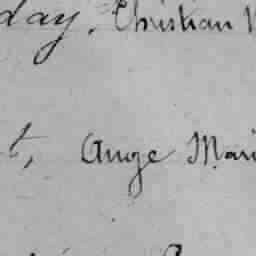 day. Christian
t, Ange Mari